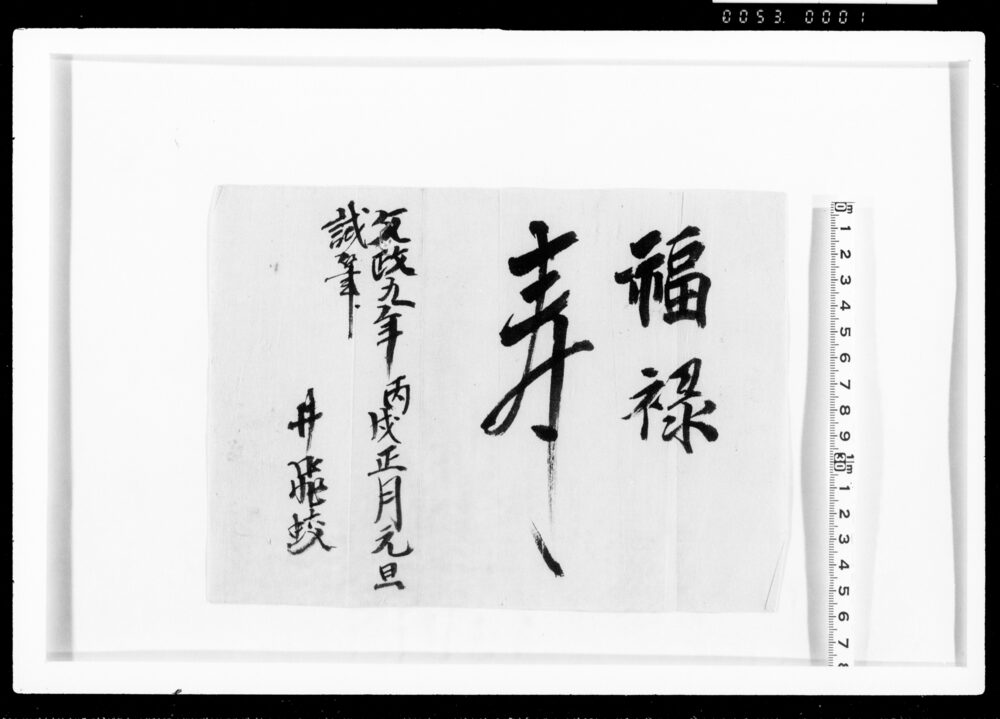 0053. 0001
福禄
寿
文政九年丙戌正月元旦
試筆
井飛蛟
0 1m 1 2 3 4 5 6 7 8 9 10 1m 1 2 3 4 5 6 7 8